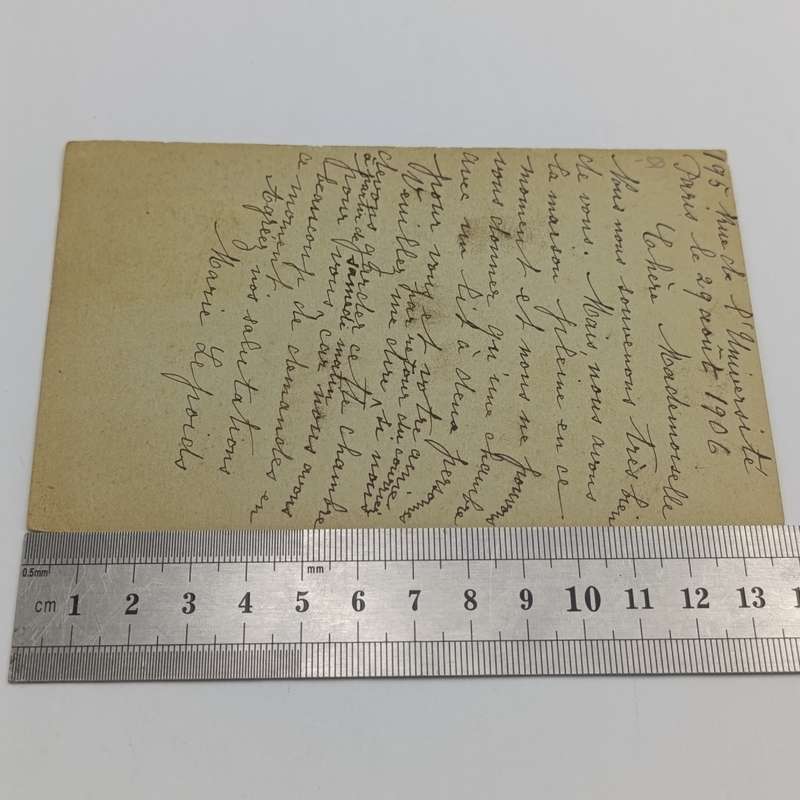 195 Rue de l'Université
Paris le 29 août 1906
Chère Mademoiselle
Nous nous souvenons très bien
de vous. Mais, nous avons
la maison pleine en ce
moment et nous ne pouvons
vous donner qu'une chambre
avec un lit à deux personnes
pour vous et votre amie
Veuillez par retour du courrier
me dire si nous
devons garder cette chambre
à partir de samedi matin
pour vous car nous avons
beaucoup de demandes en
ce moment
Agréez nos salutations
Marie Lepoids
0.5mm
mm
cm 1 2 3 4 5 6 7 8 9 10 11 12 13